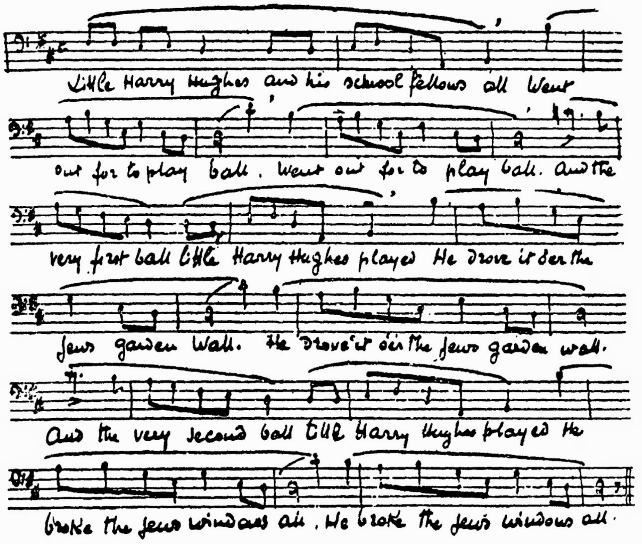 Little Harry Hughes and his school fellows all Went
out for to play ball. Went out for to play ball. And the
very first ball little Harry Hughes played He drove it o'er the
Jews garden Wall. He Drove it o'er the Jews garden wall.
And the very second ball little Harry Hughes played He
broke the Jews windows all. He broke the Jews windows all.